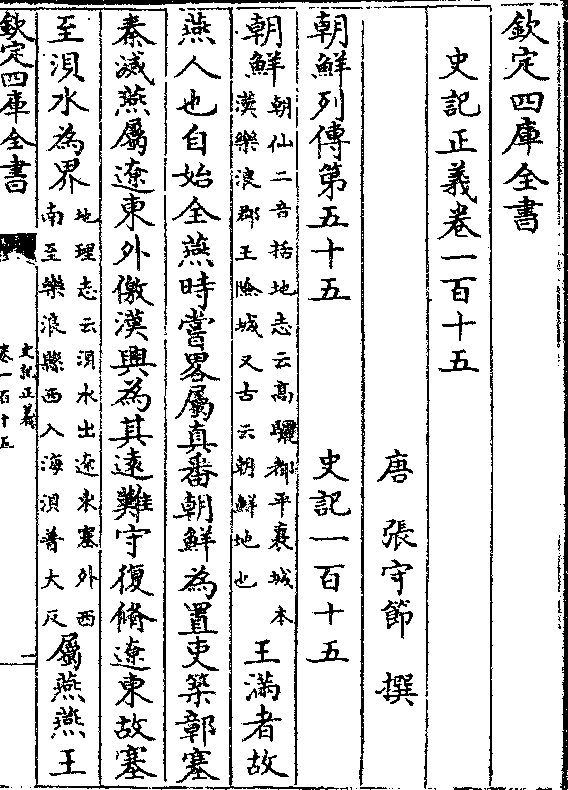 欽定四庫全書
史記正義卷一百十五
唐 張守節 撰
朝鮮列傳第五十五 史記一百十五
朝鮮朝仙二音括地志云高驪都平襄城本漢樂浪郡王險城又古云朝鮮地也王滿者故
燕人也自始全燕時嘗畧屬真番朝鮮為置吏築鄣塞
秦滅燕屬遼東外徼漢興為其逺難守復脩遼東故塞
至浿水為界地理志云浿水出遼東塞外西南至樂浪縣西入海浿普大反屬燕燕王
欽定四庫全書
史記正義
卷一百十五
一